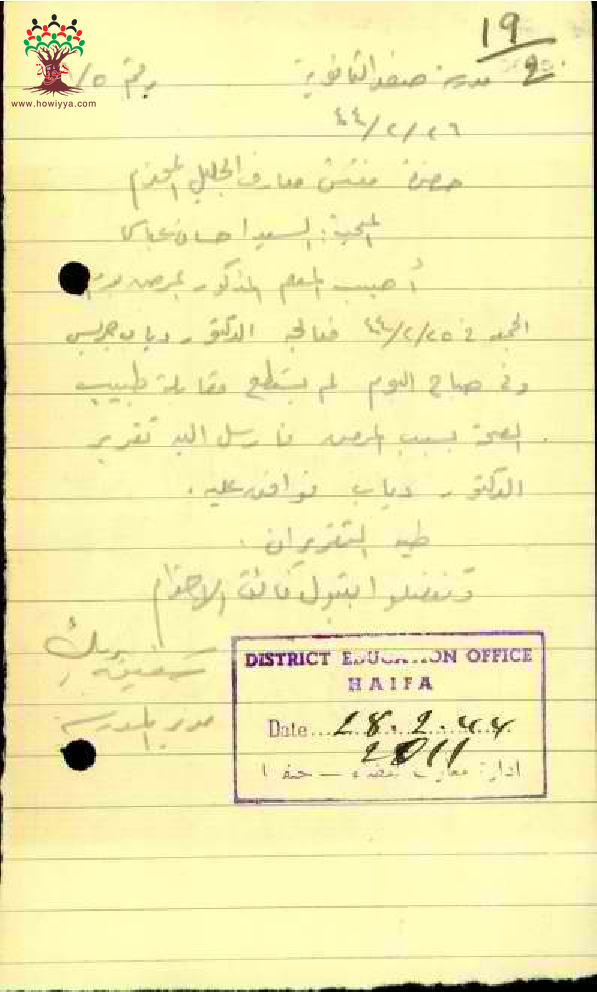 www.howiyya.com
19/2
مدرسة صفد الثانوية رقم ٥/
٤٤/٢/٢٦
حضرة مفتش معارف الجليل المحترم
السيد احسان عباس
أصيب المعلم المذكور بمرض يوم
الجمعة في ٤٤/٢/٢٥ فعالجه الدكتور دياب
وفي صباح اليوم لم يستطع مقابلة طبيب
الصحة بسبب المرض فارسل اليه تقرير
الدكتور دياب فوافق عليه.
طيه التقريران.
وتفضلوا بقبول فائق الاحترام
مدير المدرسة
DISTRICT EDUCATION OFFICE
HAIFA
Date... 28.2.44
2011
ادارة معارف حيفا